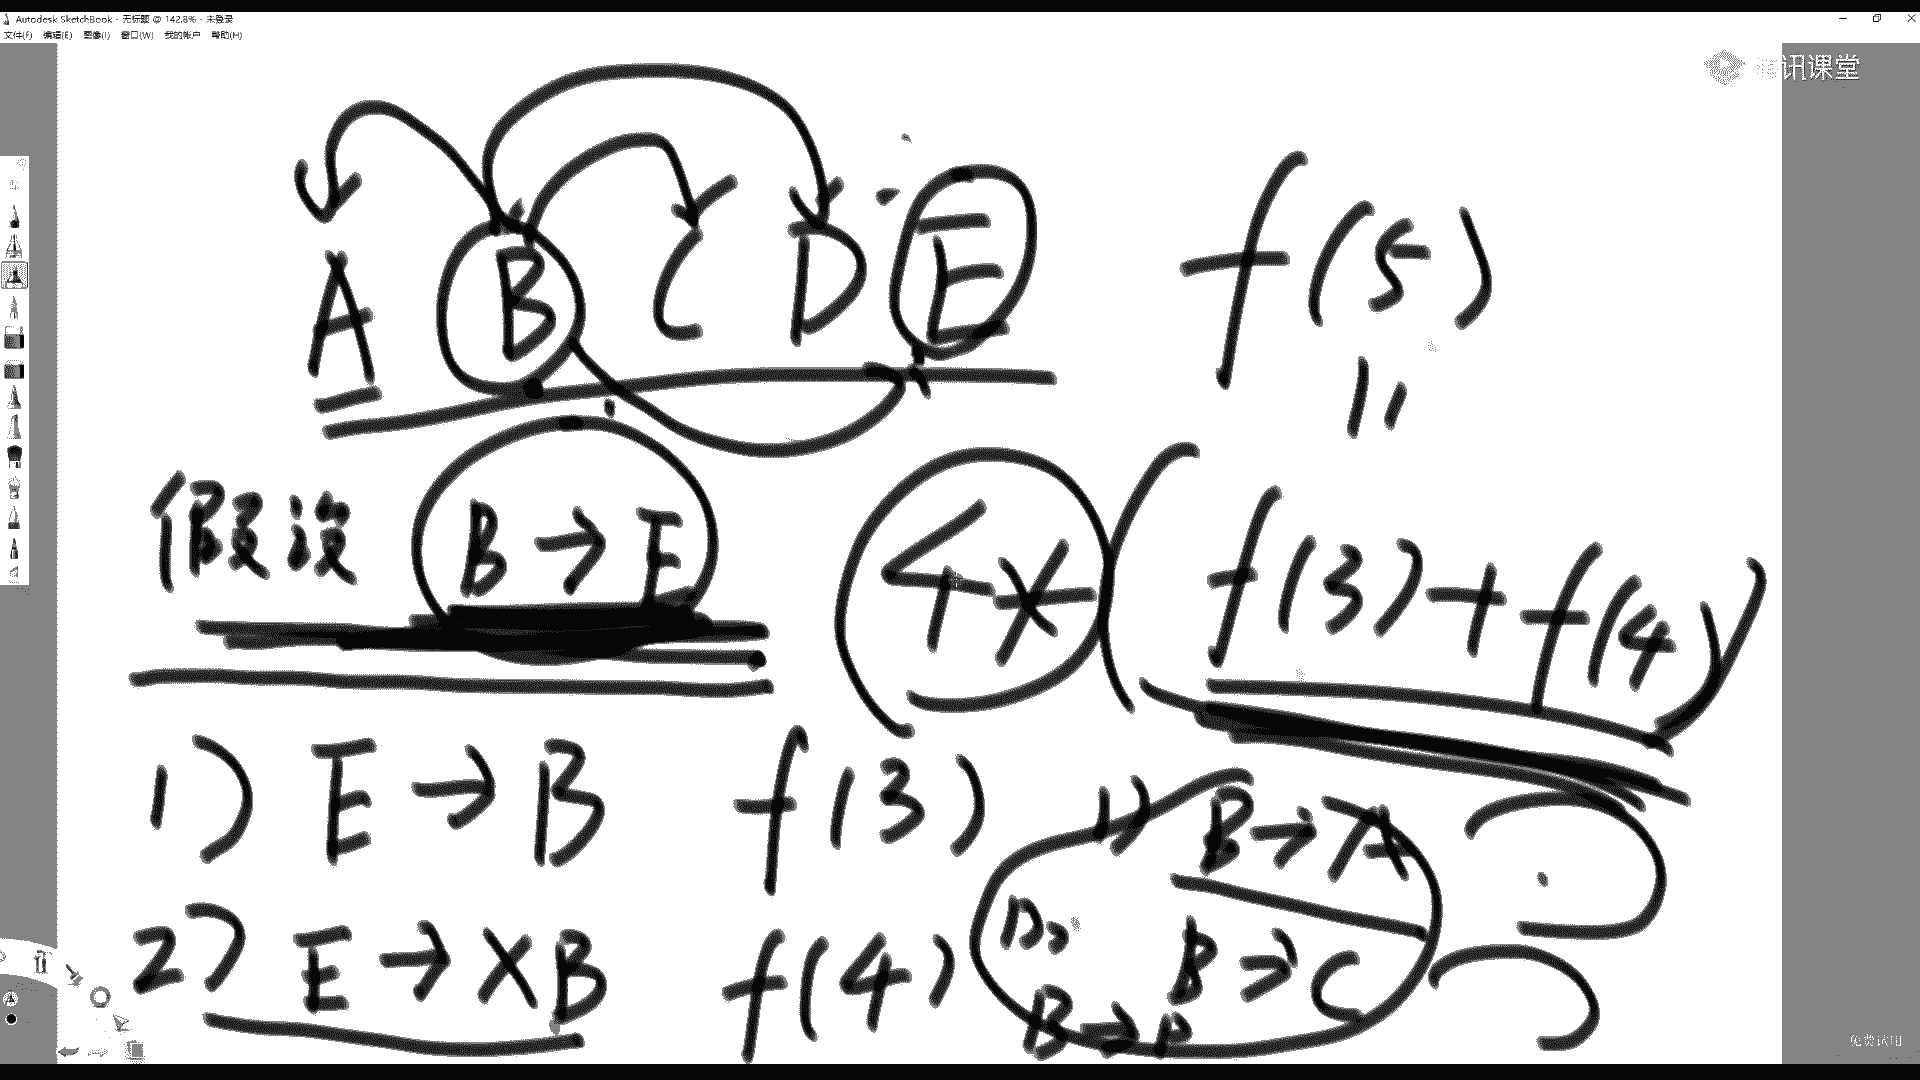 Autodesk SketchBook - 无标题 @ 142.8% - 未登录
文件(F) 编辑(E) 图像(I) 窗口(W) 我的帐户 帮助(H)
讯课堂
A B C D E f(5)
假设 B→E 4×(f(3)+f(4))
1) E→B f(3) 1) B→A
2) E→×B f(4) B→C
B→D
免费试用